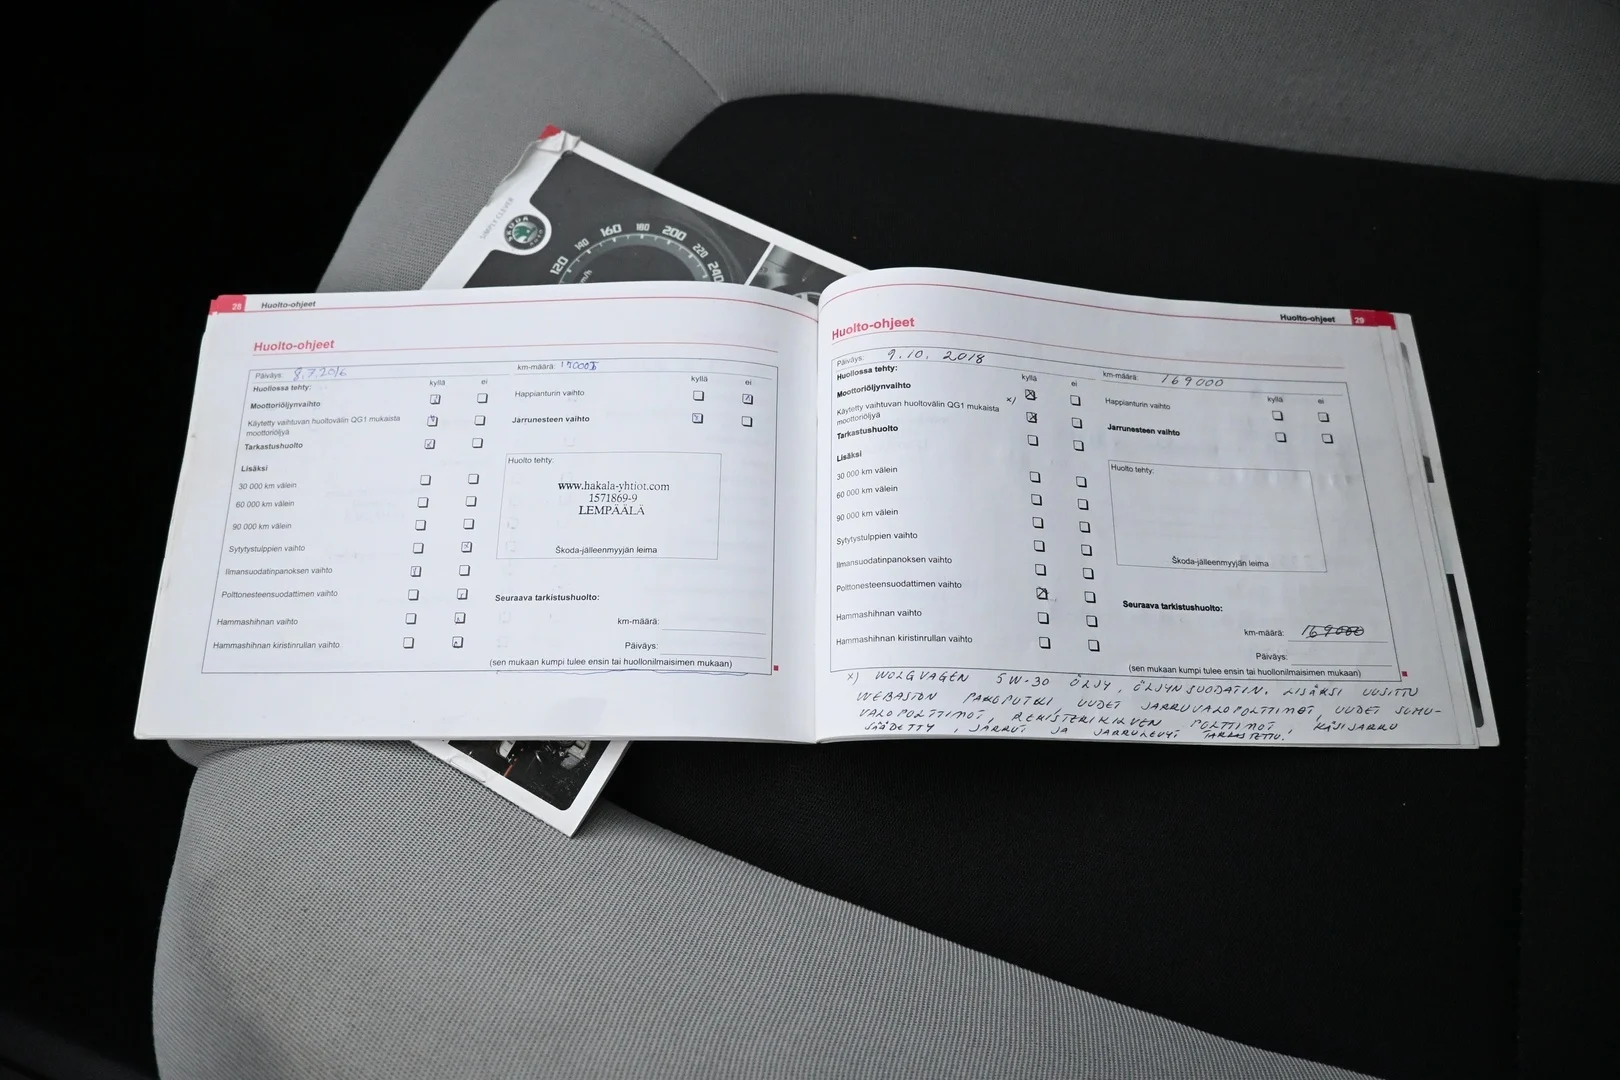 SIMPLY CLEVER
SKODA
AUTO
120
140
160
180
200
220
240
km/h
28 Huolto-ohjeet
Huolto-ohjeet
Päiväys: 8.7.2016
km-määrä:
kyllä ei
kyllä ei
Huollossa tehty:
Moottoriöljynvaihto
Käytetty vaihtuvan huoltovälin QG1 mukaista
moottoriöljyä
Tarkastushuolto
Lisäksi
30 000 km välein
60 000 km välein
90 000 km välein
Sytytystulppien vaihto
Ilmansuodatinpanoksen vaihto
Polttonesteensuodattimen vaihto
Hammashihnan vaihto
Hammashihnan kiristinrullan vaihto
Happianturin vaihto
Jarrunesteen vaihto
Huolto tehty:
www.hakala-yhtiot.com
1571869-9
LEMPÄÄLÄ
Škoda-jälleenmyyjän leima
Seuraava tarkistushuolto:
km-määrä:
Päiväys:
(sen mukaan kumpi tulee ensin tai huollonilmaisimen mukaan)
Huolto-ohjeet 29
Huolto-ohjeet
Päiväys: 9.10.2018
km-määrä: 169000
kyllä ei
kyllä ei
Huollossa tehty:
Moottoriöljynvaihto x)
Käytetty vaihtuvan huoltovälin QG1 mukaista
moottoriöljyä
Tarkastushuolto
Lisäksi
30 000 km välein
60 000 km välein
90 000 km välein
Sytytystulppien vaihto
Ilmansuodatinpanoksen vaihto
Polttonesteensuodattimen vaihto
Hammashihnan vaihto
Hammashihnan kiristinrullan vaihto
Happianturin vaihto
Jarrunesteen vaihto
Huolto tehty:
Škoda-jälleenmyyjän leima
Seuraava tarkistushuolto:
km-määrä: 169000
Päiväys:
(sen mukaan kumpi tulee ensin tai huollonilmaisimen mukaan)
x) WOLGVAGEN 5W-30 ÖLJY, ÖLJYNSUODATIN. LISÄKSI UUSITTU
WEBASTON PAKOPUTKI, UUDET JARRUVALOPOLTTIMOT, UUDET SUMU-
VALOPOLTTIMOT, REKISTERIKILVEN POLTTIMOT, KÄSIJARRU
SÄÄDETTY, JARRUT JA JARRULEVYT TARKASTETTU.